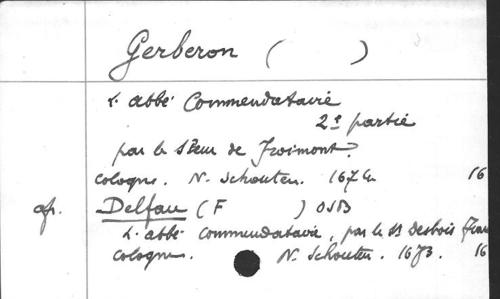 Gerberon (          )
L'abbé Commendataire
2e partie
par le Sieur de Froimont.
Cologne. N. Schouten. 1674 16
cfr. Delfau (F          ) OSB
L'abbé commendataire, par le Sr Desbois Fran
Cologne. N. Schouten. 1673. 16